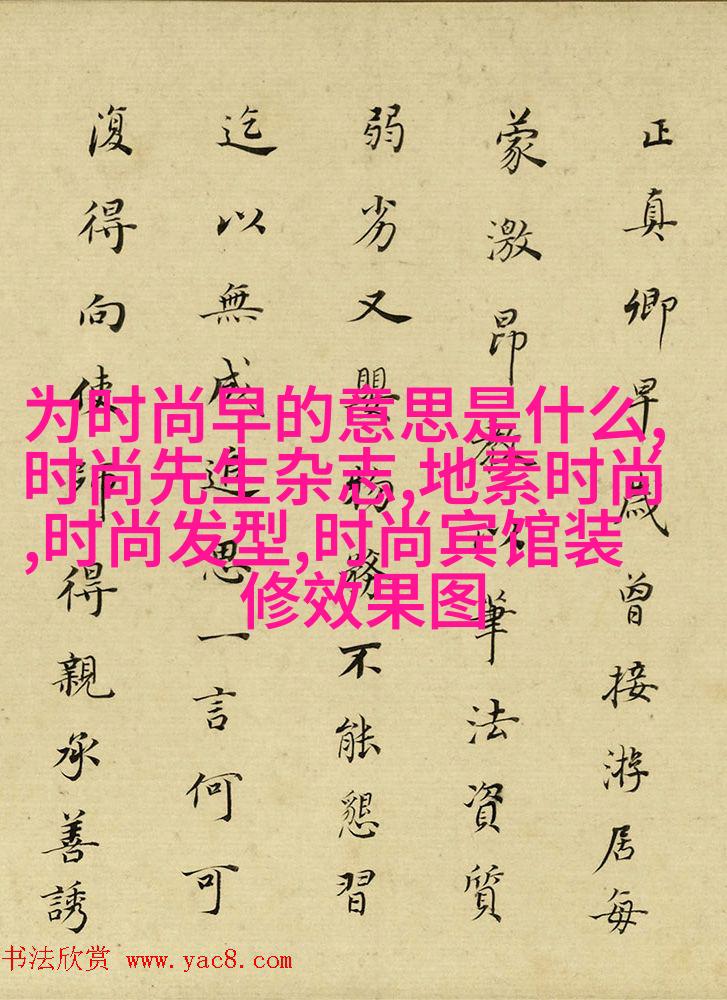 正真卿早歲曾接游居每
蒙激昂教以筆法資質
弱劣又嬰物務不能懇習
迄以無成追思一言何可
復得向使師得親承善誘
为时尚早的意思是什么,
时尚先生杂志,地素时尚
,时尚发型,时尚宾馆装
修效果图
书法欣赏 www.yac8.com